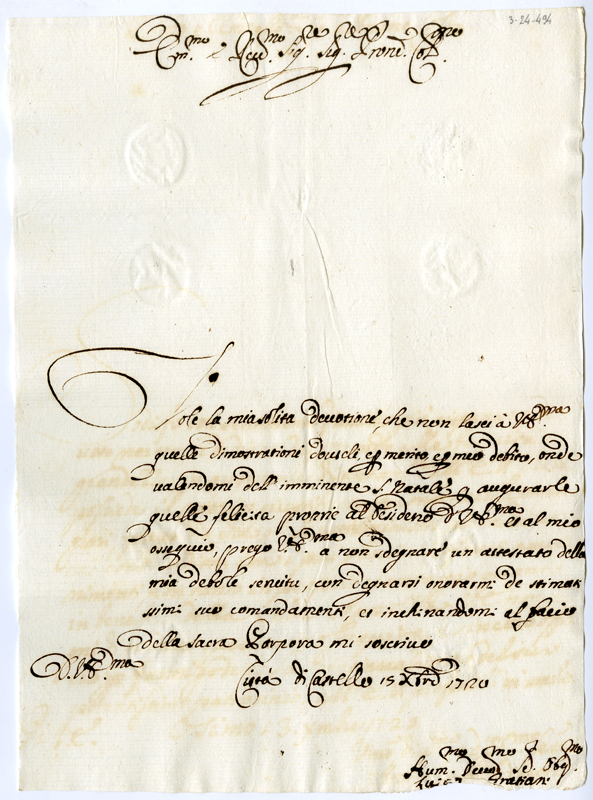 3-24-494
Em.mo e Reu.mo Sig.re Sig.re Prone. Col.mo
Vole la mia solita deuotione, che non lasci à V.Em.ma
quelle dimostrationi douteli, e p merito, e p mio debito, onde
ualendomi dell' imminente S. Natale p augurarle
quelle felicità proprie al desiderio D V.Em.ma et al mio
ossequio, prego V.Em.ma a non sdegnare un attestato della
mia debole seruitù, con degnarsi onorarmi de stimatis
simi suo comandamenti, et inchinandomi al bacio
della Sacra Porpora mi soscriuo
D. V.Em.ma
Città di Castello 15 Xbre 1720
Hum.mo Deuo.mo Se.r Obg.mo